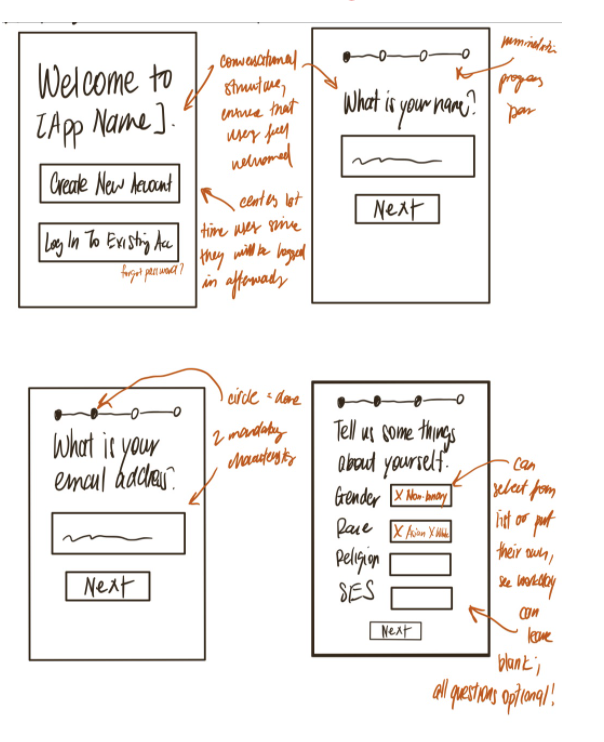 Welcome to
[App Name].
Create New Account
Log In To Existing Acc
forgot password?
conversational
structure,
ensure that
user feel
welcomed
center 1st
time user since
they will be logged
in afterwards
What is your name?
Next
minimalistic
progress
bar
What is your
email address?
Next
circle = done
2 mandatory
characteristics
Tell us some things
about yourself.
Gender
X Non-binary
Race
X Asian X White
Religion
SES
Next
can
select from
list or put
their own,
see workday
can
leave
blank;
all questions optional!